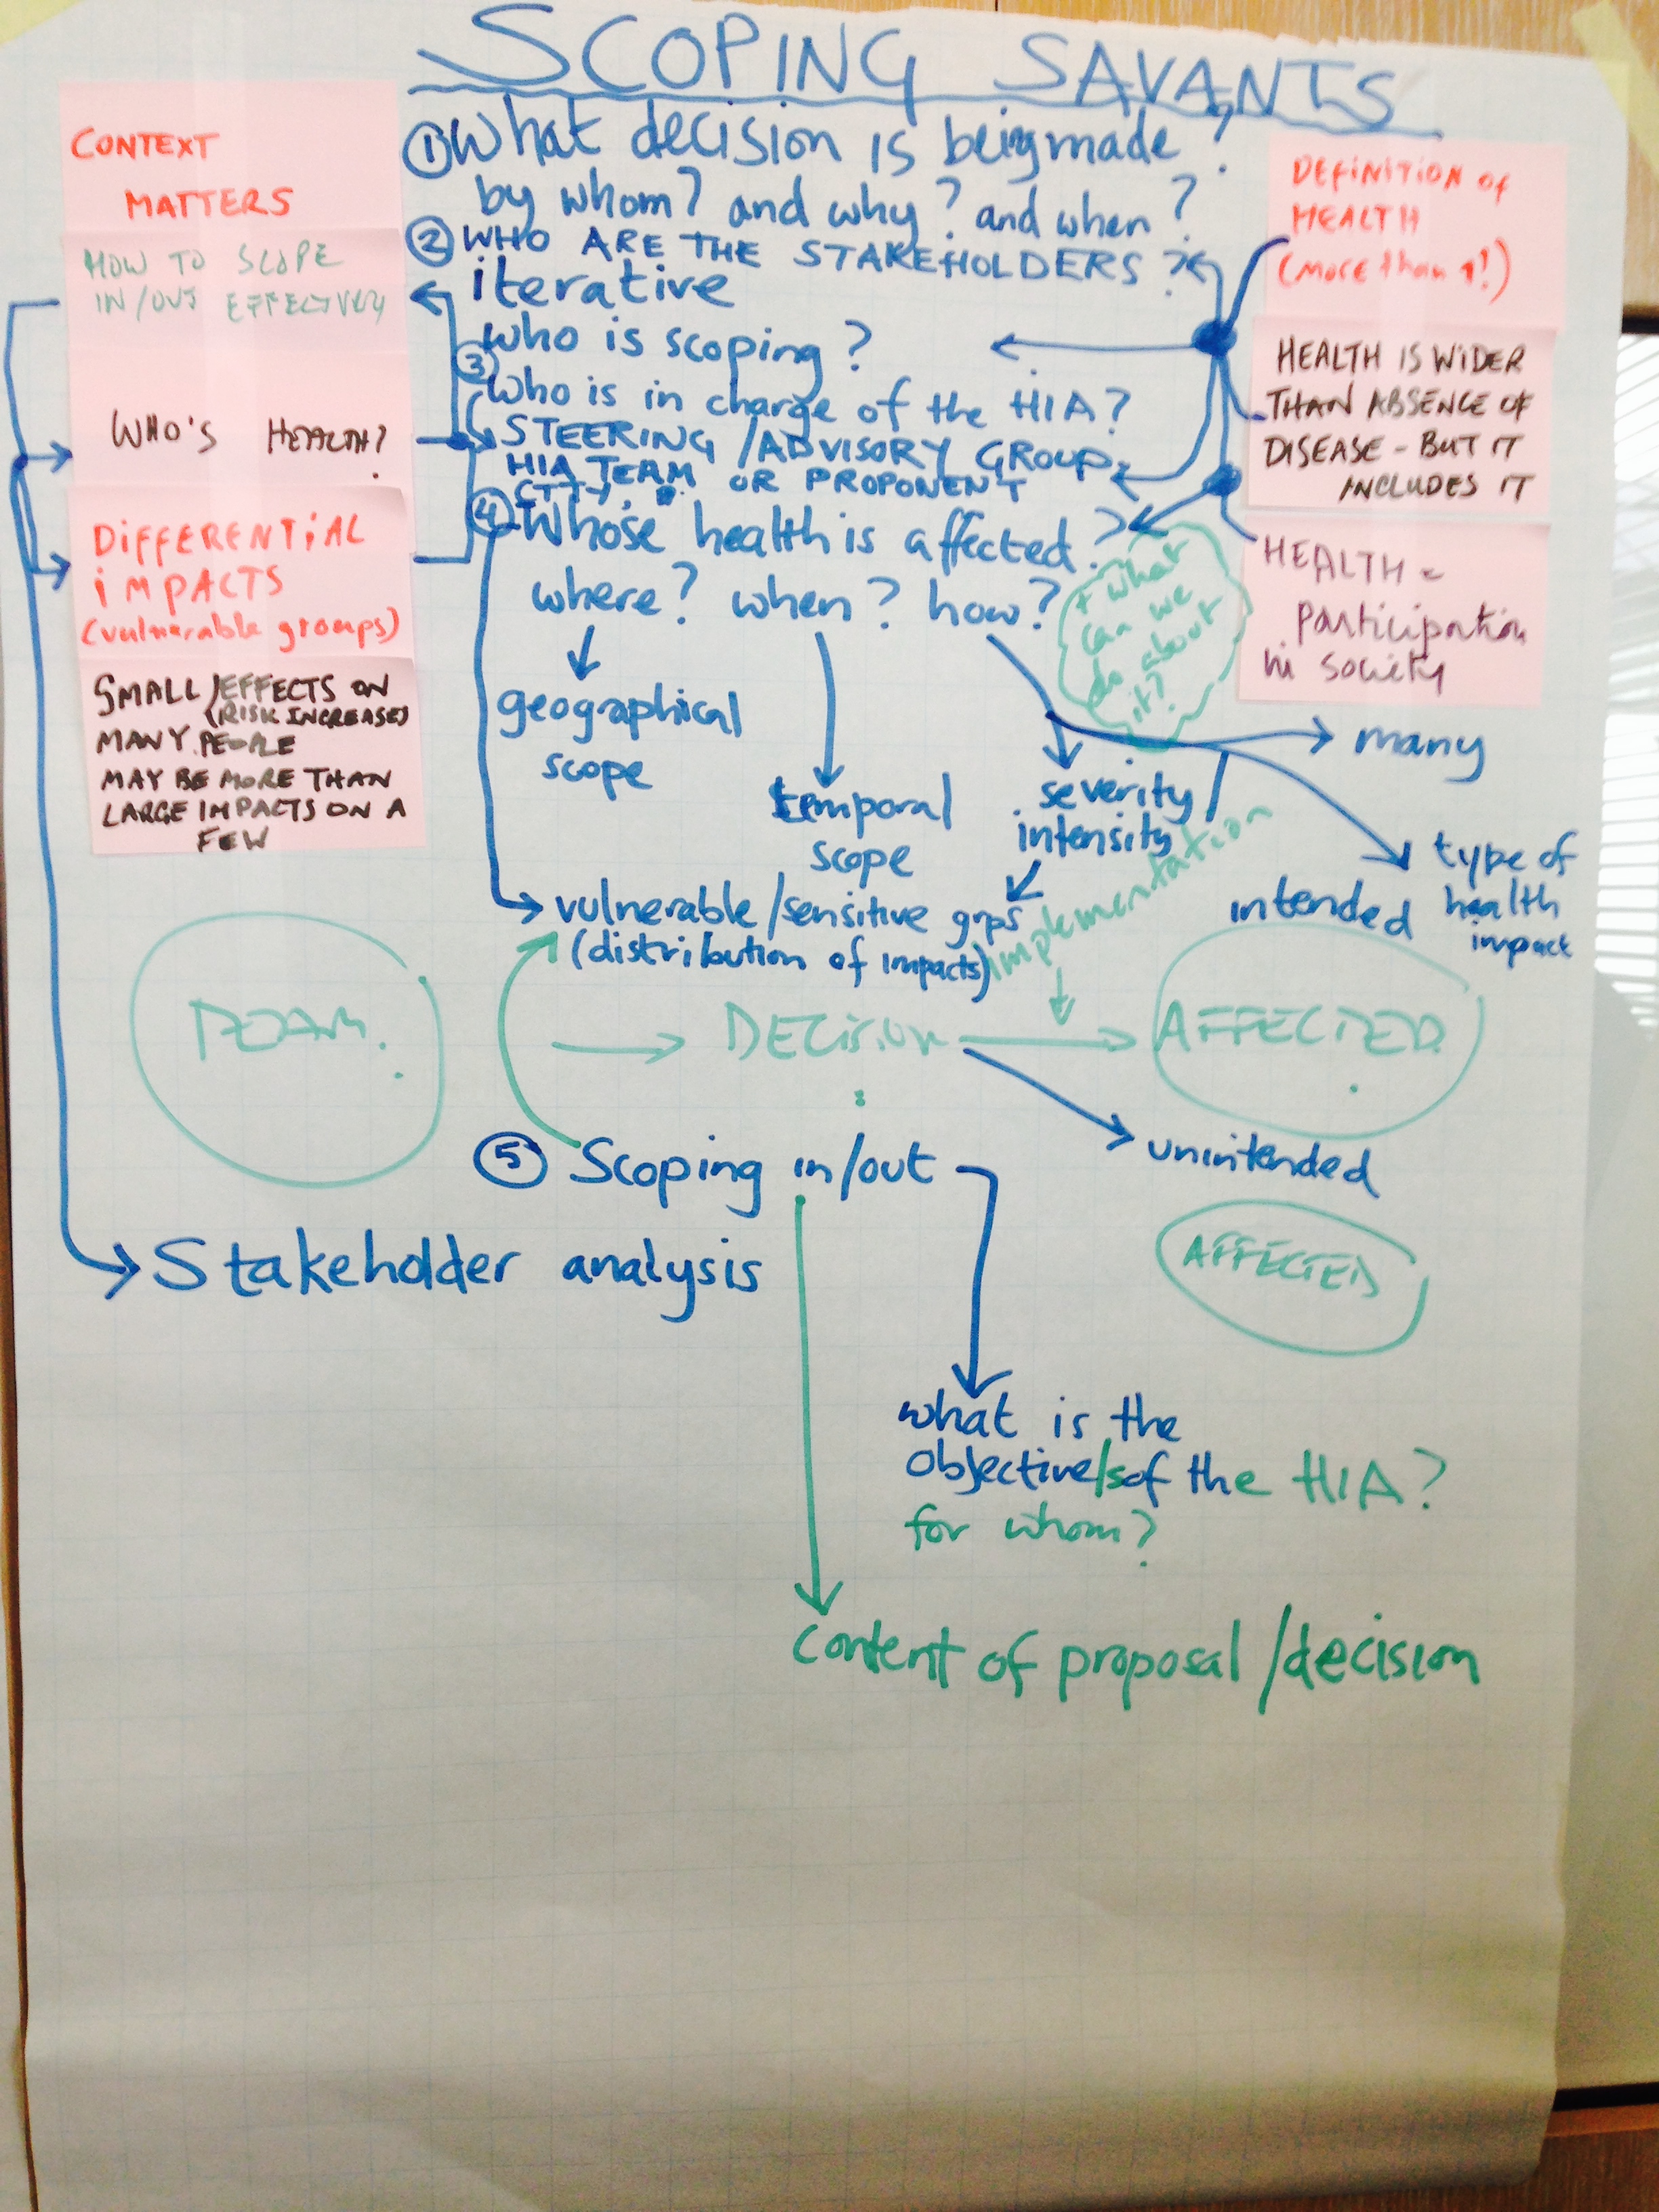 SCOPING SAVANTS
CONTEXT
MATTERS
HOW TO SCOPE
IN/OUT EFFECTIVELY
WHO'S HEALTH?
DIFFERENTIAL
IMPACTS
(vulnerable groups)
SMALL EFFECTS ON
(RISK INCREASES)
MANY PEOPLE
MAY BE MORE THAN
LARGE IMPACTS ON A
FEW
① What decision is being made?
by whom? and why? and when?
② WHO ARE THE STAKEHOLDERS?
iterative
who is scoping?
③ Who is in charge of the HIA?
STEERING/ADVISORY GROUP
HIA TEAM OR PROPONENT
④ Whose health is affected?
where? when? how?
+ what
can we
do about
it?
geographical
scope
temporal
scope
severity/
intensity
many
type of
health
impact
intended
implementation
vulnerable/sensitive grps
(distribution of impacts)
DECISION
AFFECTED
unintended
⑤ Scoping in/out
AFFECTED
Stakeholder analysis
what is the
objective/s of the HIA?
for whom?
content of proposal/decision
DEFINITION of
HEALTH
(more than 1!)
HEALTH IS WIDER
THAN ABSENCE OF
DISEASE - BUT IT
INCLUDES IT
HEALTH =
participation
in society